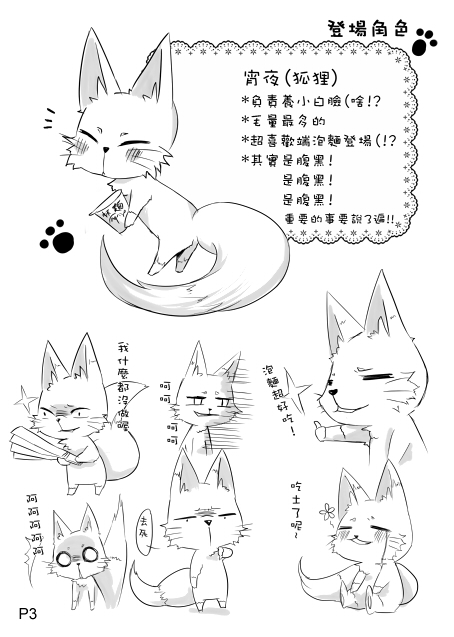 登場角色
宵夜(狐狸)
*負責養小白臉(啥!?
*毛量最多的
*超喜歡端泡麵登場(!?
*其實是腹黑!
是腹黑!
是腹黑!
重要的事要說了遍!!
泡麵
我什麼都沒做呢
呵呵
呵呵
泡麵超好吃!
呵呵呵呵呵
去死
吃土了呢~
P3